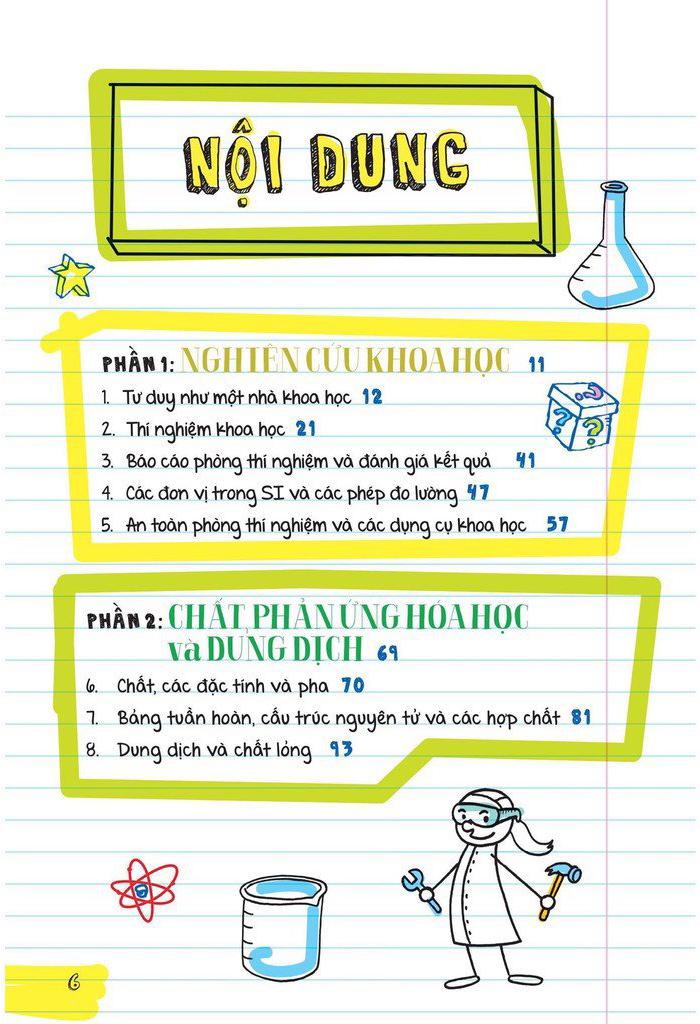 NỘI DUNG
PHẦN 1: NGHIÊN CỨU KHOA HỌC 11
1. Tư duy như một nhà khoa học 12
2. Thí nghiệm khoa học 21
? ? ?
3. Báo cáo phòng thí nghiệm và đánh giá kết quả 41
4. Các đơn vị trong SI và các phép đo lường 47
5. An toàn phòng thí nghiệm và các dụng cụ khoa học 57
PHẦN 2: CHẤT, PHẢN ỨNG HÓA HỌC
và DUNG DỊCH 69
6. Chất, các đặc tính và pha 70
7. Bảng tuần hoàn, cấu trúc nguyên tử và các hợp chất 81
8. Dung dịch và chất lỏng 93
6